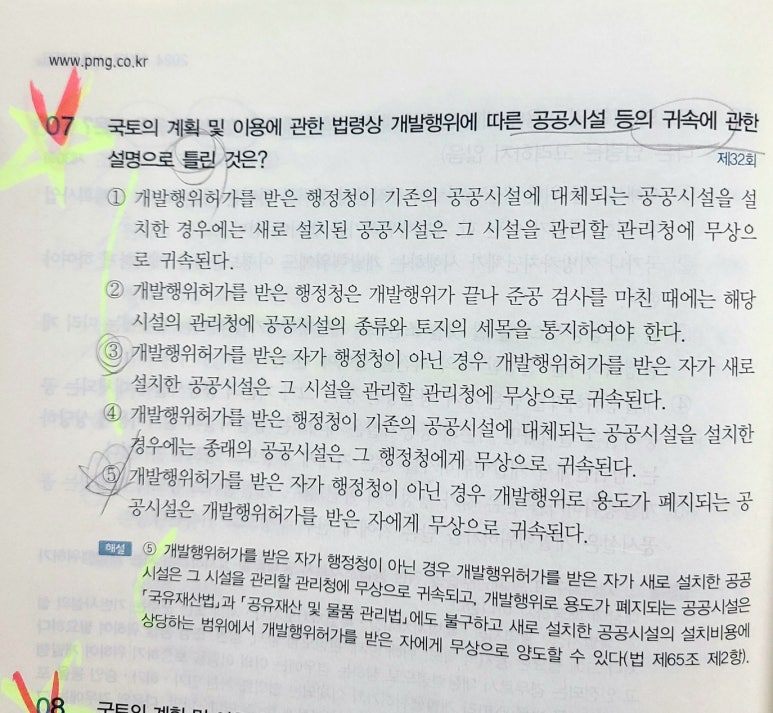 www.pmg.co.kr
07 국토의 계획 및 이용에 관한 법령상 개발행위에 따른 공공시설 등의 귀속에 관한
설명으로 틀린 것은? 제32회
① 개발행위허가를 받은 행정청이 기존의 공공시설에 대체되는 공공시설을 설
치한 경우에는 새로 설치된 공공시설은 그 시설을 관리할 관리청에 무상으
로 귀속된다.
② 개발행위허가를 받은 행정청은 개발행위가 끝나 준공 검사를 마친 때에는 해당
시설의 관리청에 공공시설의 종류와 토지의 세목을 통지하여야 한다.
③ 개발행위허가를 받은 자가 행정청이 아닌 경우 개발행위허가를 받은 자가 새로
설치한 공공시설은 그 시설을 관리할 관리청에 무상으로 귀속된다.
④ 개발행위허가를 받은 행정청이 기존의 공공시설에 대체되는 공공시설을 설치한
경우에는 종래의 공공시설은 그 행정청에게 무상으로 귀속된다.
⑤ 개발행위허가를 받은 자가 행정청이 아닌 경우 개발행위로 용도가 폐지되는 공
공시설은 개발행위허가를 받은 자에게 무상으로 귀속된다.
해설 ⑤ 개발행위허가를 받은 자가 행정청이 아닌 경우 개발행위허가를 받은 자가 새로 설치한 공공
시설은 그 시설을 관리할 관리청에 무상으로 귀속되고, 개발행위로 용도가 폐지되는 공공시설은
「국유재산법」과 「공유재산 및 물품 관리법」에도 불구하고 새로 설치한 공공시설의 설치비용에
상당하는 범위에서 개발행위허가를 받은 자에게 무상으로 양도할 수 있다(법 제65조 제2항).
08 국토의 계획 및